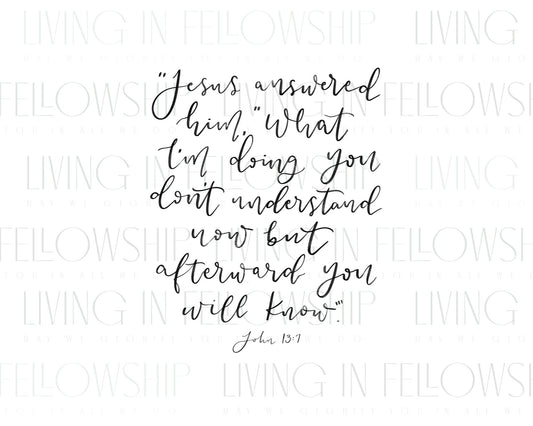 LIVING IN FELLOWSHIP LIVING
FELLOWSHIP LIVING IN FELLOWSHIP
LIVING IN FELLOWSHIP LIVING
FELLOWSHIP LIVING IN FELLOWSHIP
LIVING IN FELLOWSHIP LIVING
FELLOWSHIP LIVING IN FELLOWSHIP
"Jesus answered
him, "What
I'm doing you
don't understand
now but
afterward you
will know."'
John 13:7